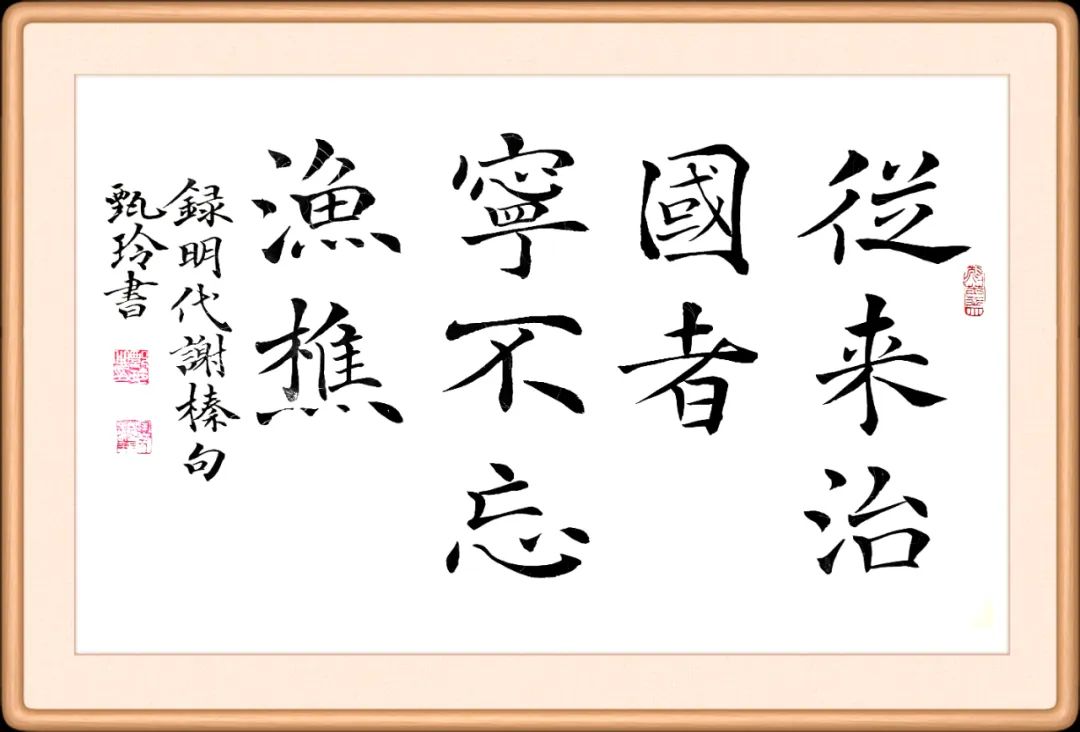 従来治
國者
寧不忘
漁樵
録明代謝榛句
甄玲書